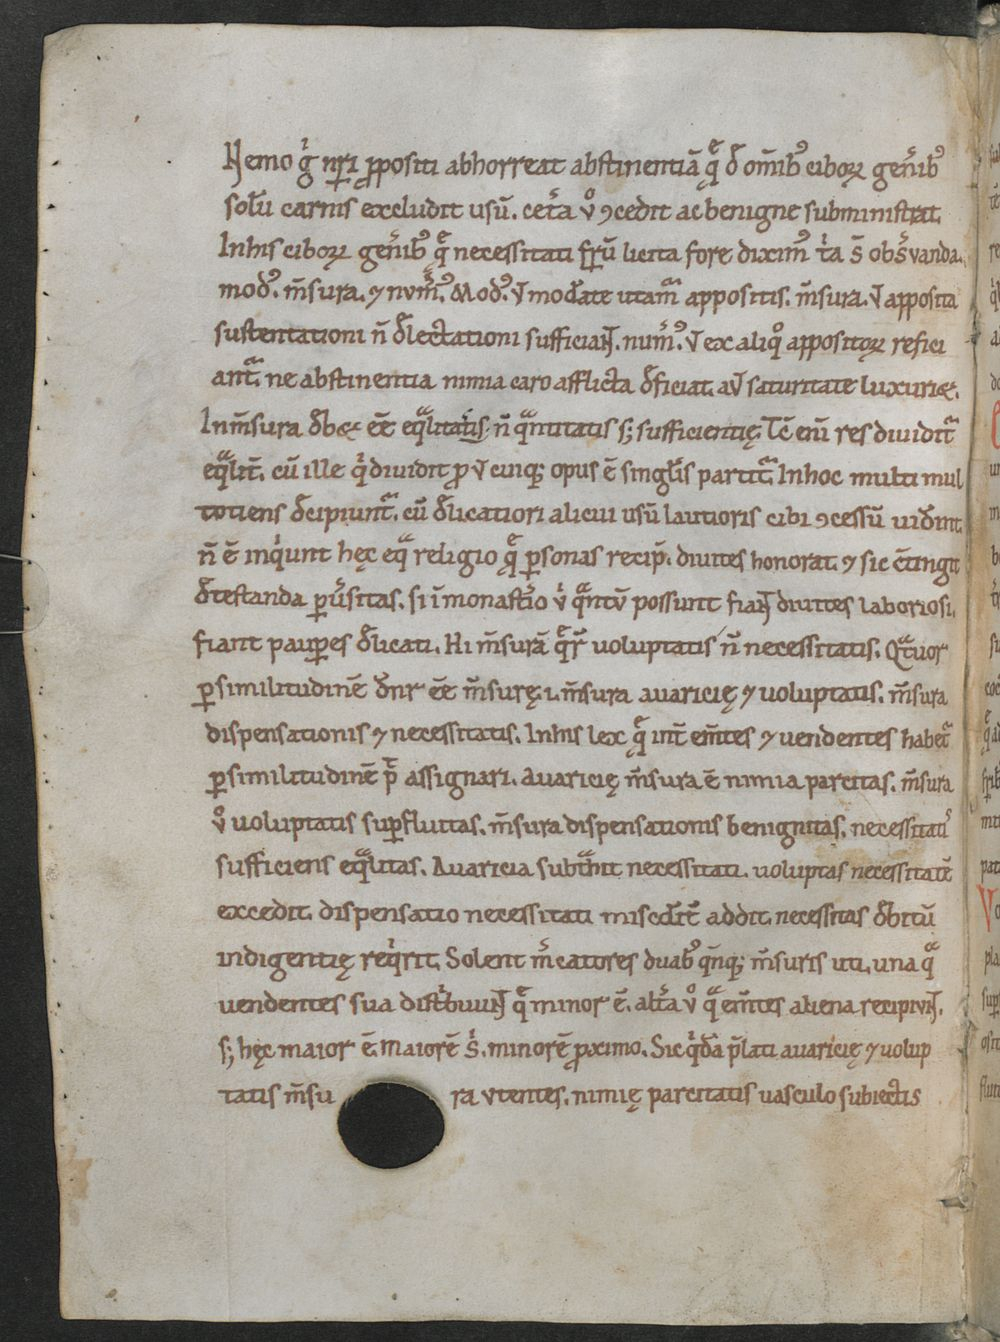 Nemo gͥ nr̄i ꝓpositi abhorreat abstinentiā q̨ͤ đ om̄ibꝰ ciboꝝ gen̄ibꝰ
solū carnis excludit usū. cet̄a v̊ ꝯcedit ac benigne subministrat.
In his ciboꝝ gen̄ibꝰ q̨ͤ necessitati fr̄ū licita fore diximꝰ t̓a s̄ obs̄vanda.
modꝰ. m̄sura. ⁊ nvm̄ꝰ. Modꝰ. ƚ mođate utamᷓ appositis. m̄sura. ƚ apposita
sustentationi n̄ đlectationi sufficiaɴᴛ. num̄ꝰ. ƚ ex aliqͦ appositoꝝ refici
antᷓ. ne abstinentia nimia caro afflicta đficiat. aƚ saturitate luxuriet.
In m̄sura đbet ēē eqᷓlitatis; n̄ qᷓntitatis sꝫ sufficientię. Tc̄ eni res dividitᷓ
eqᷓlit̄. cū ille qͥ dividit ꝓ ƚ cuiqꝫ opus ē singl̄is partitᷓ. In hoc multi mul
totiens đcipiuntᷓ. cū đlicatiori alicui usū lautioris cibi ꝯcessū viđint.
n̄ ē inqͥunt hęc eqᷓ religio q̨ͤ ꝑsonas recip̄. divites honorat. ⁊ sic c̄tingit
đtestanda ꝑv̄sitas. si ī monast̄io ƚ qᷓntv̄ possunt fiaɴᴛ divites laboriosi.
fiant pauꝑes đlicati. Hi m̄surā qᷓr̄ uoluptatis n̄ necessitatis. Qᷓtuor
ꝑ similitudinē đnr̄ ēē m̄surę. i. m̄sura avaricię ⁊ voluptatis. m̄sura
dispensationis ⁊ necessitatis. In his lex q̨ͤ int̄ em̄tes ⁊ vendentes habetᷓ
ꝑ similitudinē p̄t assignari. Avaricię m̄sura ē nimia parcitas. m̄sura
v̊ voluptatis suꝑfluitas. m̄sura dispensationis benignitas. necessitatꝰ
sufficiens eqᷓlitas. Avaricia subtᷓhit necessitati. voluptas necessitatē
excedit. dispensatio necessitati misc̄dit̄ addit. necessitas đbitū
indigentię reqͥrit. Solent m̄catores duabꝰ qn̄qꝫ m̄suris uti. una qᷓ
vendentes sua distͥbuuɴᴛ q̨ͤ minor ē. alt̄a v̊ qᷓ em̄tes aliena recipivɴᴛ.
sꝫ hęc maior ē. Maiorē s̄. minorē ꝓximo. Sic qͥđa p̄lati avaricię ⁊ volup
tatis m̄su ra vtentes. nimię parcitatis vasculo subiectis